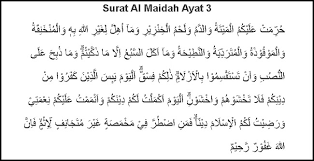 Surat Al Maidah Ayat 3
حُرِّمَتْ عَلَيْكُمُ الْمَيْتَةُ وَالدَّمُ وَلَحْمُ الْخِنْزِيْرِ وَمَآ اُهِلَّ لِغَيْرِ اللّٰهِ بِهٖ وَالْمُنْخَنِقَةُ
وَالْمَوْقُوْذَةُ وَالْمُتَرَدِّيَةُ وَالنَّطِيْحَةُ وَمَآ اَكَلَ السَّبُعُ اِلَّا مَا ذَكَّيْتُمْۗ وَمَا ذُبِحَ عَلَى
النُّصُبِ وَاَنْ تَسْتَقْسِمُوْا بِالْاَزْلَامِۗ ذٰلِكُمْ فِسْقٌۗ اَلْيَوْمَ يَىِٕسَ الَّذِيْنَ كَفَرُوْا مِنْ
دِيْنِكُمْ فَلَا تَخْشَوْهُمْ وَاخْشَوْنِۗ اَلْيَوْمَ اَكْمَلْتُ لَكُمْ دِيْنَكُمْ وَاَتْمَمْتُ عَلَيْكُمْ نِعْمَتِيْ
وَرَضِيْتُ لَكُمُ الْاِسْلَامَ دِيْنًاۗ فَمَنِ اضْطُرَّ فِيْ مَخْمَصَةٍ غَيْرَ مُتَجَانِفٍ لِّاِثْمٍۙ فَاِنَّ
اللّٰهَ غَفُوْرٌ رَّحِيْمٌ